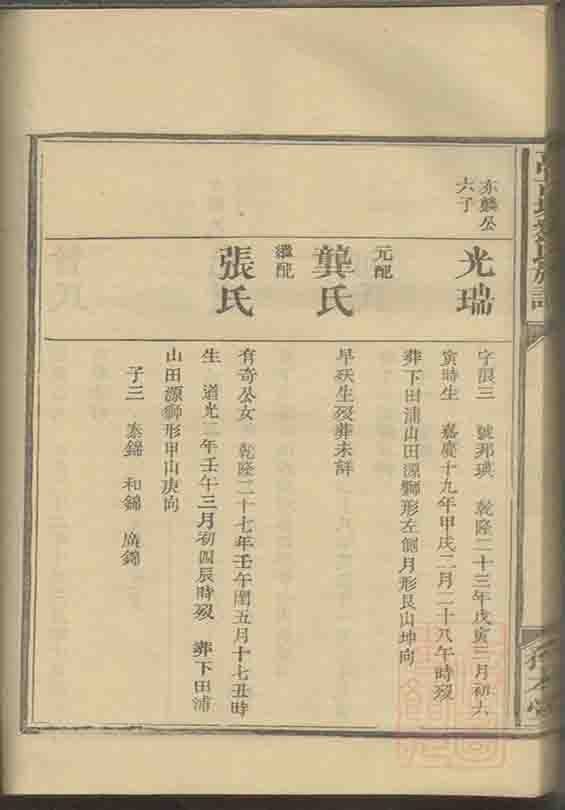 亦麟公
六子
光瑞
字限三 號邦瑛 乾隆二十三年戊寅三月初六
寅時生 嘉慶十九年甲戌二月二十八午時歿
葬下田浦山田源獅形左側月形艮山坤向
元配
龔氏
早殀生歿葬未詳
繼配
張氏
有奇公女 乾隆二十七年壬午閏五月十七丑時
生 道光二年壬午三月初四辰時歿 葬下田浦
山田源獅形甲山庚向
子三 泰錦 和錦 廣錦